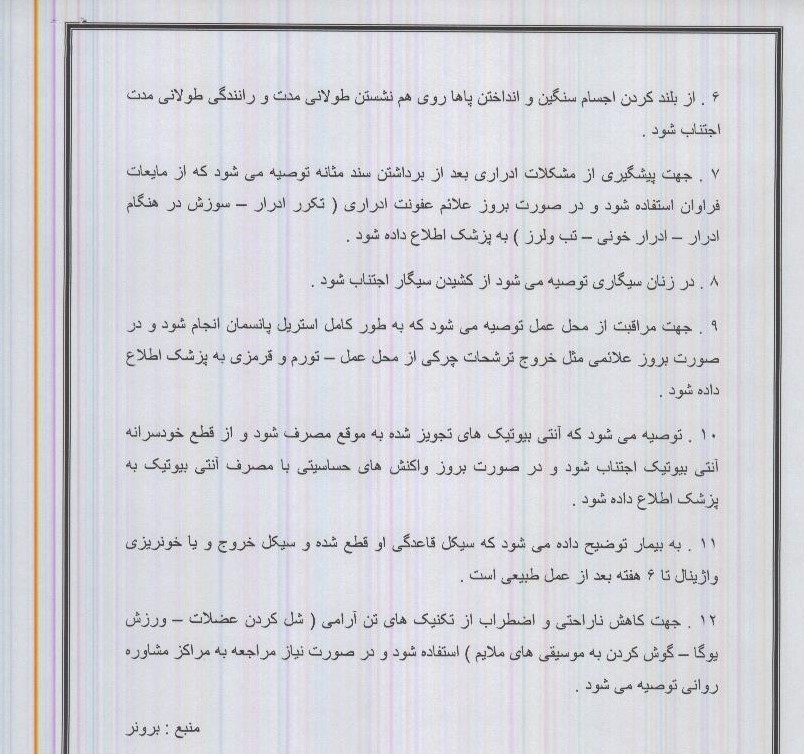 ۶ . از بلند کردن اجسام سنگین و انداختن پاها روی هم نشستن طولانی مدت و رانندگی طولانی مدت
اجتناب شود .
۷ . جهت پیشگیری از مشکلات ادراری بعد از برداشتن سند مثانه توصیه می شود که از مایعات
فراوان استفاده شود و در صورت بروز علائم عفونت ادراری ( تکرر ادرار – سوزش در هنگام
ادرار – ادرار خونی – تب ولرز ) به پزشک اطلاع داده شود .
۸ . در زنان سیگاری توصیه می شود از کشیدن سیگار اجتناب شود .
۹ . جهت مراقبت از محل عمل توصیه می شود که به طور کامل استریل پانسمان انجام شود و در
صورت بروز علائمی مثل خروج ترشحات چرکی از محل عمل – تورم و قرمزی به پزشک اطلاع
داده شود .
۱۰ . توصیه می شود که آنتی بیوتیک های تجویز شده به موقع مصرف شود و از قطع خودسرانه
آنتی بیوتیک اجتناب شود و در صورت بروز واکنش های حساسیتی با مصرف آنتی بیوتیک به
پزشک اطلاع داده شود .
۱۱ . به بیمار توضیح داده می شود که سیکل قاعدگی او قطع شده و سیکل خروج و یا خونریزی
واژینال تا ۶ هفته بعد از عمل طبیعی است .
۱۲ . جهت کاهش ناراحتی و اضطراب از تکنیک های تن آرامی ( شل کردن عضلات – ورزش
یوگا – گوش کردن به موسیقی های ملایم ) استفاده شود و در صورت نیاز مراجعه به مراکز مشاوره
روانی توصیه می شود .
منبع : برونر